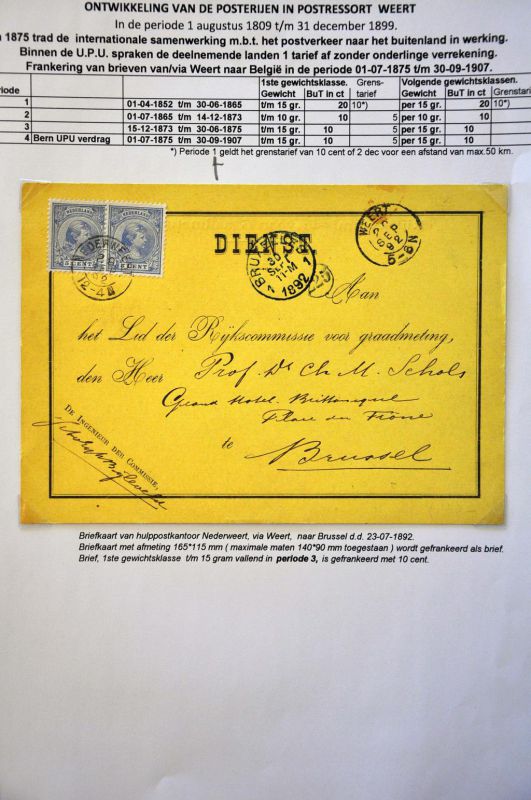 ONTWIKKELING VAN DE POSTERIJEN IN POSTRESSORT WEERT
In de periode 1 augustus 1809 t/m 31 december 1899.
1875 trad de internationale samenwerking m.b.t. het postverkeer naar het buitenland in werking.
Binnen de U.P.U. spraken de deelnemende landen 1 tarief af zonder onderlinge verrekening.
Frankering van brieven van/via Weert naar België in de periode 01-07-1875 t/m 30-09-1907.
1ste gewichtsklasse. Grens- Volgende gewichtsklassen.
riode Gewicht BuT in ct tarief Gewicht BuT in ct Grenstarief
1 01-04-1852 t/m 30-06-1865 t/m 15 gr. 20 10*) per 15 gr. 20 10*)
2 01-07-1865 t/m 14-12-1873 t/m 10 gr. 10 5 per 10 gr. 10 5
3 15-12-1873 t/m 30-06-1875 t/m 15 gr. 10 5 per 15 gr. 10 5
4 Bern UPU verdrag 01-07-1875 t/m 30-09-1907 t/m 15 gr. 10 5 per 15 gr. 10 5
*) Periode 1 geldt het grenstarief van 10 cent of 2 dec voor een afstand van max.50 km.
NEDERLAND NEDERLAND
CENT CENT
12-4N
DIENST
1892
225
WEERT
5-6N
Aan
het Lid der Rijkscommissie voor graadmeting,
den Heer Prof. Dr. Ch. M. Schols
Grand Hotel Brittanique
Place du Trône
te
Brussel
DE INGENIEUR DER COMMISSIE,
Briefkaart van hulppostkantoor Nederweert, via Weert, naar Brussel d.d. 23-07-1892.
Briefkaart met afmeting 165*115 mm ( maximale maten 140*90 mm toegestaan ) wordt gefrankeerd als brief.
Brief, 1ste gewichtsklasse t/m 15 gram vallend in periode 3, is gefrankeerd met 10 cent.